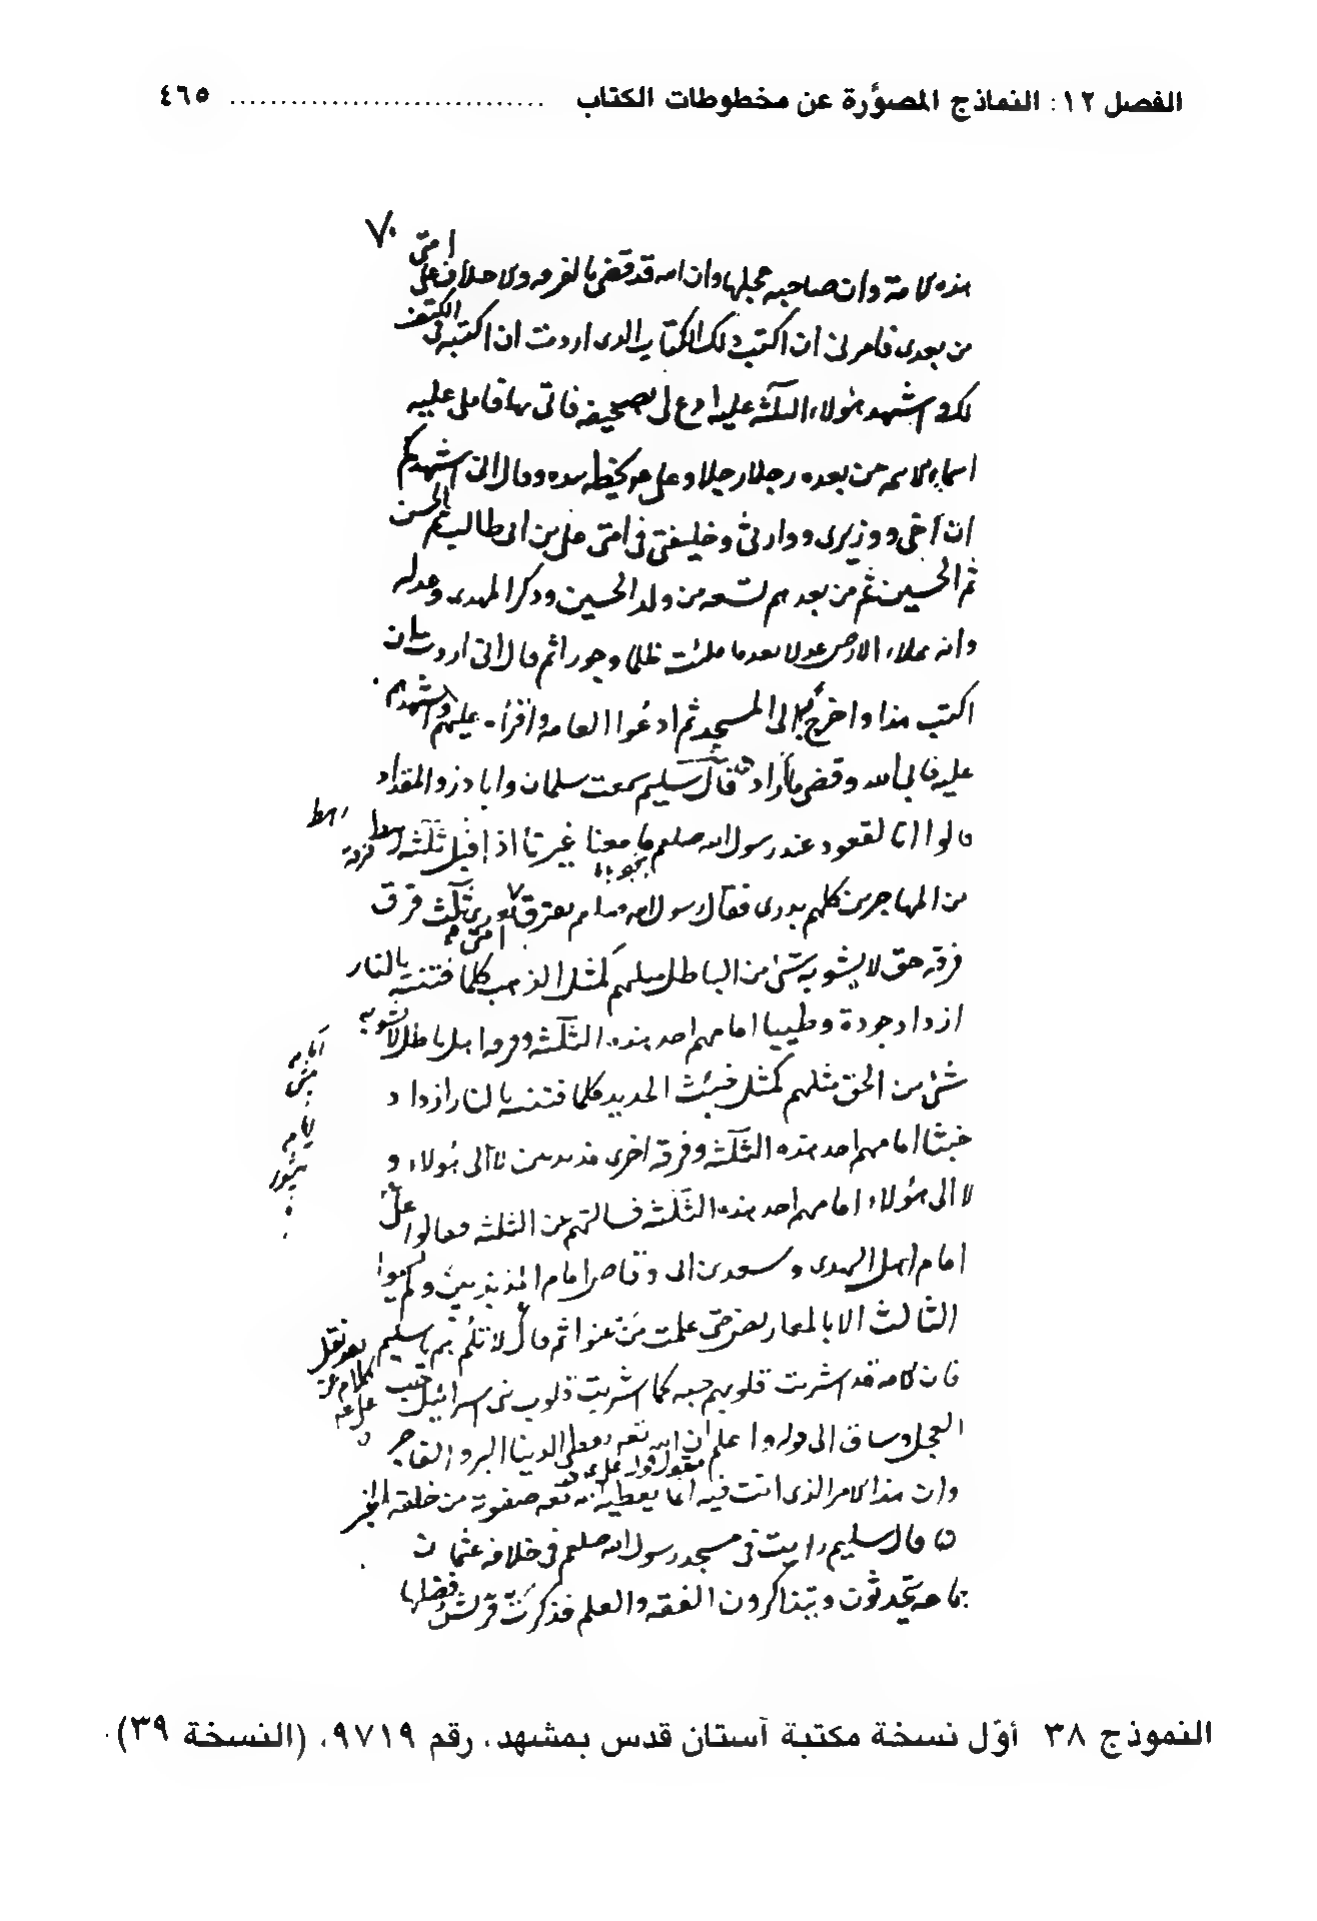 الفصل ١٢: النماذج المصوَّرة عن مخطوطات الكتاب ٤٦٥
٧٠
امتى
هذه الامة وان صاحبه عجلها وان الله قد قضى بالفرقه والاختلاف على
من بعدى فامرنى ان اكتب ذلك الكتاب الذى اردت ان اكتبه فى الكتف
لك واشهد هؤلاء الثلثة عليه ادع لى بصحيفه فاتى بها فاملى عليه
اسماء الائمه من بعده رجلا رجلا وعلى يخطه بيده وقال انى اشهدكم
ان اخى ووزيرى ووارثى وخليفتى فى امتى على بن ابى طالب ثم الحسن
ثم الحسين ثم من بعدهم تسعه من ولد الحسين وذكر المهدى وعدله
وانه يملاء الارض عدلا بعد ما ملئت ظلما وجورا ثم قال انى اردت بان
اكتب هذا واخرج به الى المسجد ثم ادعوا العامه واقرأ عليهم واشهدهم
عليه فابى الله وقضى ما اراد قال سليم سمعت سلمان واباذر والمقداد
قالوا انا لقعود عند رسول الله صلعم ما معنا غيرنا اذ اقبل ثلثه رهط
من المهاجرين كلهم بدرى فقال رسول الله تفترق امتى ثلث فرق
فرقه حق لا يشوبه شئ من الباطل مثلهم كمثل الذهب كلما فتنته بالنار
ازداد جودة وطيبا امامهم احد هذه الثلثة وفرقه اهل باطل لا يشوبه
شئ من الحق مثلهم كمثل خبث الحديد كلما فتنته بالنار ازداد
خبثا امامهم احد هذه الثلثة وفرقه اخرى مذبذبين لا الى هؤلاء و
لا الى هؤلاء امامهم احد هذه الثلثة فسالتهم عن الثلثه فقالوا على
امام اهل الهدى وسعد بن ابى وقاص امام المذبذبين ولم يسموا
الثالث الا بالمعاريض حتى علمت من عنوا ثم قال لا تلم يا سليم
فان الامه قد اشربت قلوبهم حبه كما اشربت قلوب بنى اسرائيل حب
العجل وساق الى قوله واعلم ان الله يعطى الدنيا البر والفاجر
وان هذا الامر الذى انت فيه انما يعطيه الله صفوته من خلقه الخبر
قال سليم رايت فى مسجد رسول الله صلعم فى خلافه عثمان
جماعه يتحدثون ويتذاكرون الفقه والعلم فذكرت قريش فضلها
النموذج ٣٨ أوّل نسخة مكتبة آستان قدس بمشهد، رقم ٩٧١٩، (النسخة ٣٩).